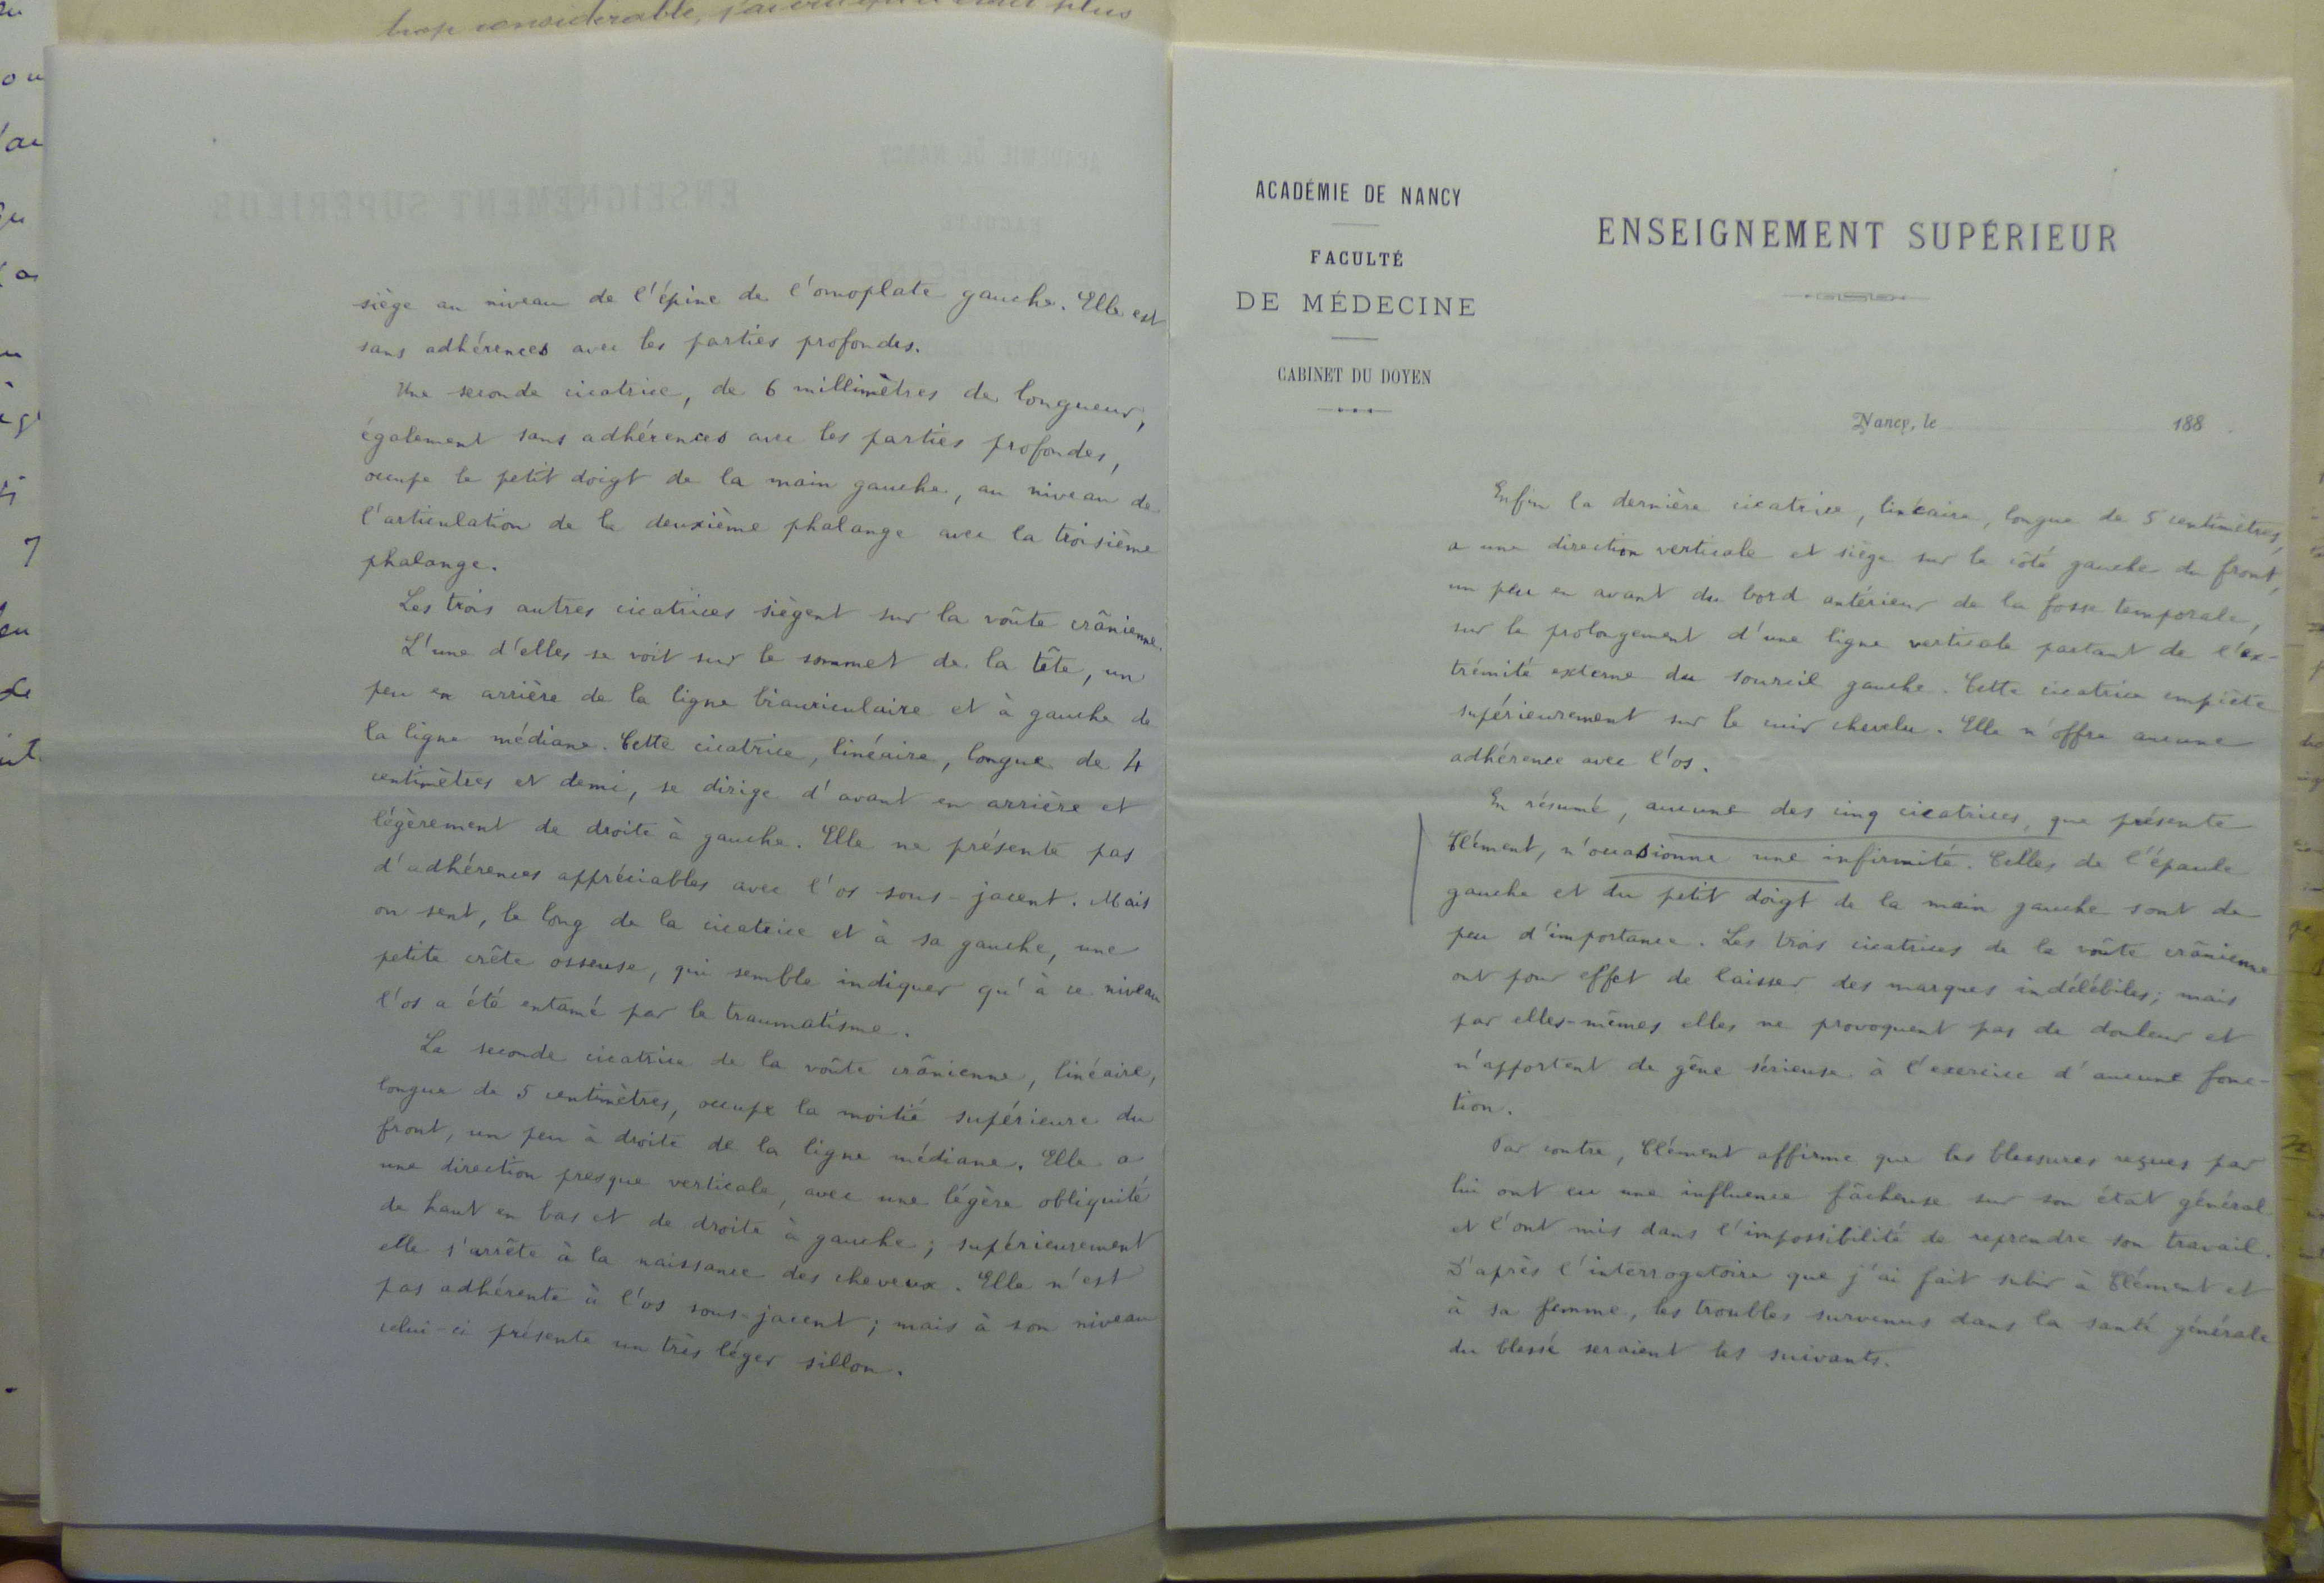 trop considérable, j'ai cru qu'il était plus
siège au niveau de l'épine de l'omoplate gauche. Elle est
sans adhérences avec les parties profondes.
Une seconde cicatrice, de 6 millimètres de longueur,
également sans adhérences avec les parties profondes,
occupe le petit doigt de la main gauche, au niveau de
l'articulation de la deuxième phalange avec la troisième
phalange.
Les trois autres cicatrices siègent sur la voûte crânienne.
L'une d'elles se voit sur le sommet de la tête, un
peu en arrière de la ligne biauriculaire et à gauche de
la ligne médiane. Cette cicatrice, linéaire, longue de 4
centimètres et demi, se dirige d'avant en arrière et
légèrement de droite à gauche. Elle ne présente pas
d'adhérences appréciables avec l'os sous-jacent. Mais
on sent, le long de la cicatrice et à sa gauche, une
petite crête osseuse, qui semble indiquer qu'à ce niveau
l'os a été entamé par le traumatisme.
La seconde cicatrice de la voûte crânienne, linéaire,
longue de 5 centimètres, occupe la moitié supérieure du
front, un peu à droite de la ligne médiane. Elle a
une direction presque verticale, avec une légère obliquité
de haut en bas et de droite à gauche ; supérieurement
elle s'arrête à la naissance des cheveux. Elle n'est
pas adhérente à l'os sous-jacent ; mais à son niveau
celui-ci présente un très léger sillon.
ACADÉMIE DE NANCY
FACULTÉ
DE MÉDECINE
CABINET DU DOYEN
ENSEIGNEMENT SUPÉRIEUR
Nancy, le 188
Enfin la dernière cicatrice, linéaire, longue de 5 centimètres,
a une direction verticale et siège sur le côté gauche du front,
un peu en avant du bord antérieur de la fosse temporale,
sur le prolongement d'une ligne verticale partant de l'ex-
trémité externe du sourcil gauche. Cette cicatrice empiète
supérieurement sur le cuir chevelu. Elle n'offre aucune
adhérence avec l'os.
En résumé, aucune des cinq cicatrices, que présente
Clément, n'occasionne une infirmité. Celles de l'épaule
gauche et du petit doigt de la main gauche sont de
peu d'importance. Les trois cicatrices de la voûte crânienne
ont pour effet de laisser des marques indélébiles ; mais
par elles-mêmes elles ne provoquent pas de douleur et
n'apportent de gêne sérieuse à l'exercice d'aucune fonc-
tion.
Par contre, Clément affirme que les blessures reçues par
lui ont eu une influence fâcheuse sur son état général
et l'ont mis dans l'impossibilité de reprendre son travail.
D'après l'interrogatoire que j'ai fait subir à Clément et
à sa femme, les troubles survenus dans la santé générale
du blessé seraient les suivants.